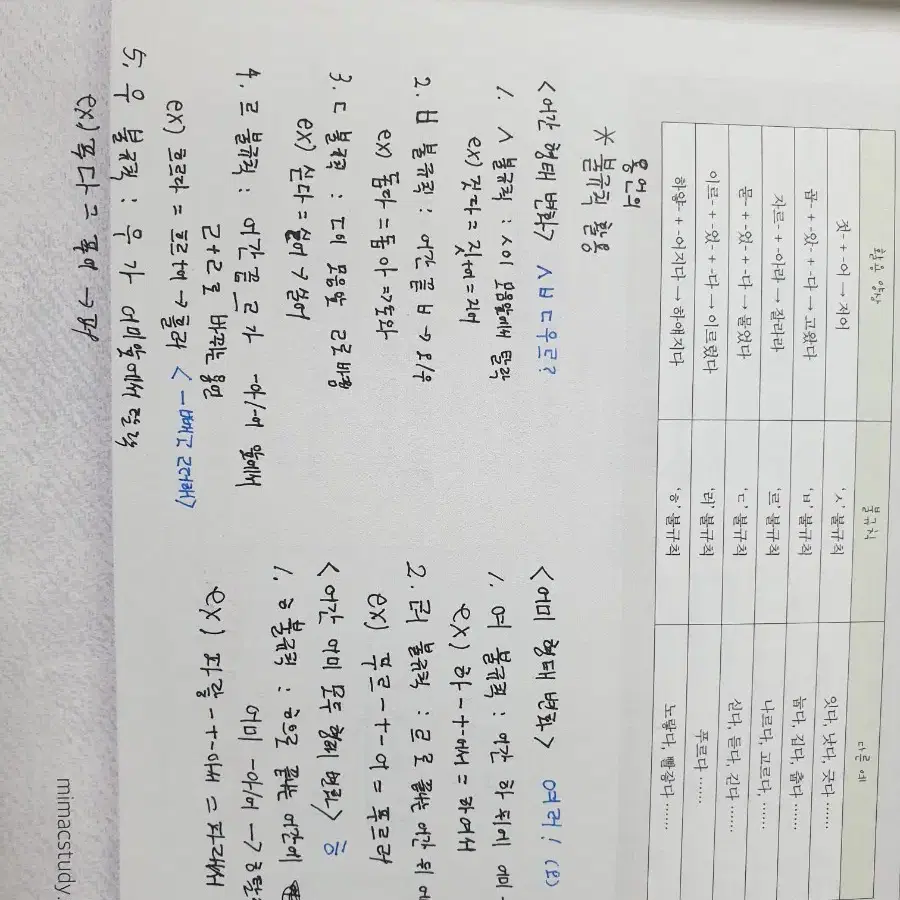 활용 양상 불규칙 다른 예
젓- + -어 → 저어 'ㅅ' 불규칙 잇다, 낫다, 긋다 ……
곱- + -았- + -다 → 고왔다 'ㅂ' 불규칙 눕다, 깁다, 춥다 ……
자르- + -아라 → 잘라라 '르' 불규칙 나르다, 고르다, ……
묻- + -었- + -다 → 물었다 'ㄷ' 불규칙 싣다, 듣다, 걷다 ……
이르- + -었- + -다 → 이르렀다 '러' 불규칙 푸르다 ……
하얗- + -어지다 → 하얘지다 'ㅎ' 불규칙 노랗다, 빨갛다 ……
용언의
* 불규칙 활용
<어간 형태 변화> ㅅㅂㄷ우르?
1. ㅅ 불규칙 : ㅅ이 모음앞에서 탈락
ex) 짓다 = 짓+어 = 지어
2. ㅂ 불규칙 : 어간 끝 ㅂ → 오/우
ex) 돕다 = 돕아 => 도와
3. ㄷ 불규칙 : ㄷ이 모음앞 ㄹ로 바뀜
ex) 싣다 = 싣어 → 실어
4. 르 불규칙 : 어간 끝 르가 -아/-어 앞에서
ㄹ+ㄹ로 바뀌는 용언
ex) 흐르다 = 흐르+어 → 흘러 <ㅡ빼고 ㄹ더해>
5. 우 불규칙 : 우가 어미앞에서 탈락
ex) 푸다 = 푸어 → 퍼
<어미 형태 변화> 여러! (오)
1. 여 불규칙 : 어간 하 뒤에 어미 -
ex) 하-+-어서 = 하여서
2. 러 불규칙 : 르로 끝나는 어간 뒤 어
ex) 푸르-+-어 = 푸르러
<어간 어미 모두 형태 변화> ㅎ
1. ㅎ 불규칙 : ㅎ으로 끝나는 어간에
어미 -아/어 → ㅎ탈
ex) 파랗-+-아서 = 파래서
mimacstudy.